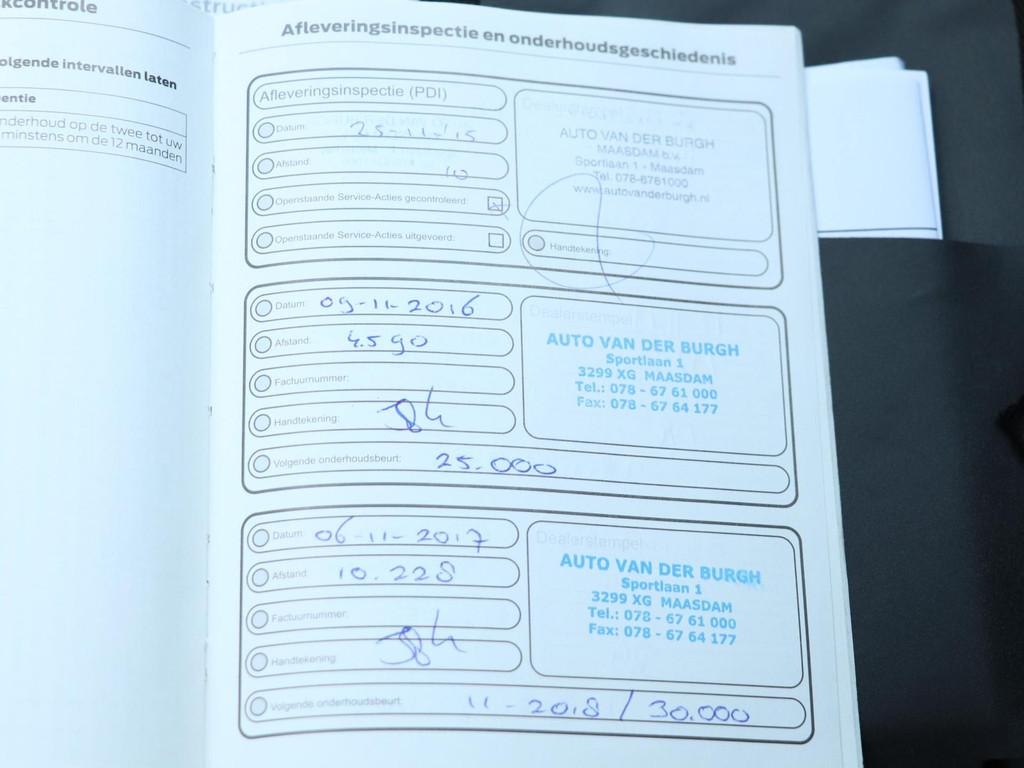 kcontrole
olgende intervallen laten
entie
nderhoud op de twee tot uw
minstens om de 12 maanden
Afleveringsinspectie en onderhoudsgeschiedenis
Afleveringsinspectie (PDI)
Datum: 25-11-'15
Afstand: 10
Openstaande Service-Acties gecontroleerd:
Openstaande Service-Acties uitgevoerd:
Dealerstempel
AUTO VAN DER BURGH
MAASDAM b.v.
Sportlaan 1 - Maasdam
Tel. 078-6761000
www.autovanderburgh.nl
Handtekening:
Datum: 09-11-2016
Afstand: 4.590
Factuurnummer:
Handtekening:
Volgende onderhoudsbeurt: 25.000
Dealerstempel
AUTO VAN DER BURGH
Sportlaan 1
3299 XG MAASDAM
Tel.: 078 - 67 61 000
Fax: 078 - 67 64 177
Datum: 06-11-2017
Afstand: 10.228
Factuurnummer:
Handtekening:
Volgende onderhoudsbeurt: 11-2018 / 30.000
Dealerstempel
AUTO VAN DER BURGH
Sportlaan 1
3299 XG MAASDAM
Tel.: 078 - 67 61 000
Fax: 078 - 67 64 177